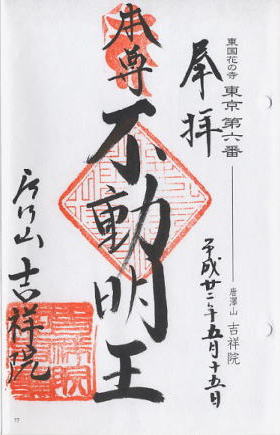 東国花の寺 東京 第六番 唐澤山 吉祥院
奉拝
平成廿二年五月十五日
本尊
不動明王
唐沢山 吉祥院